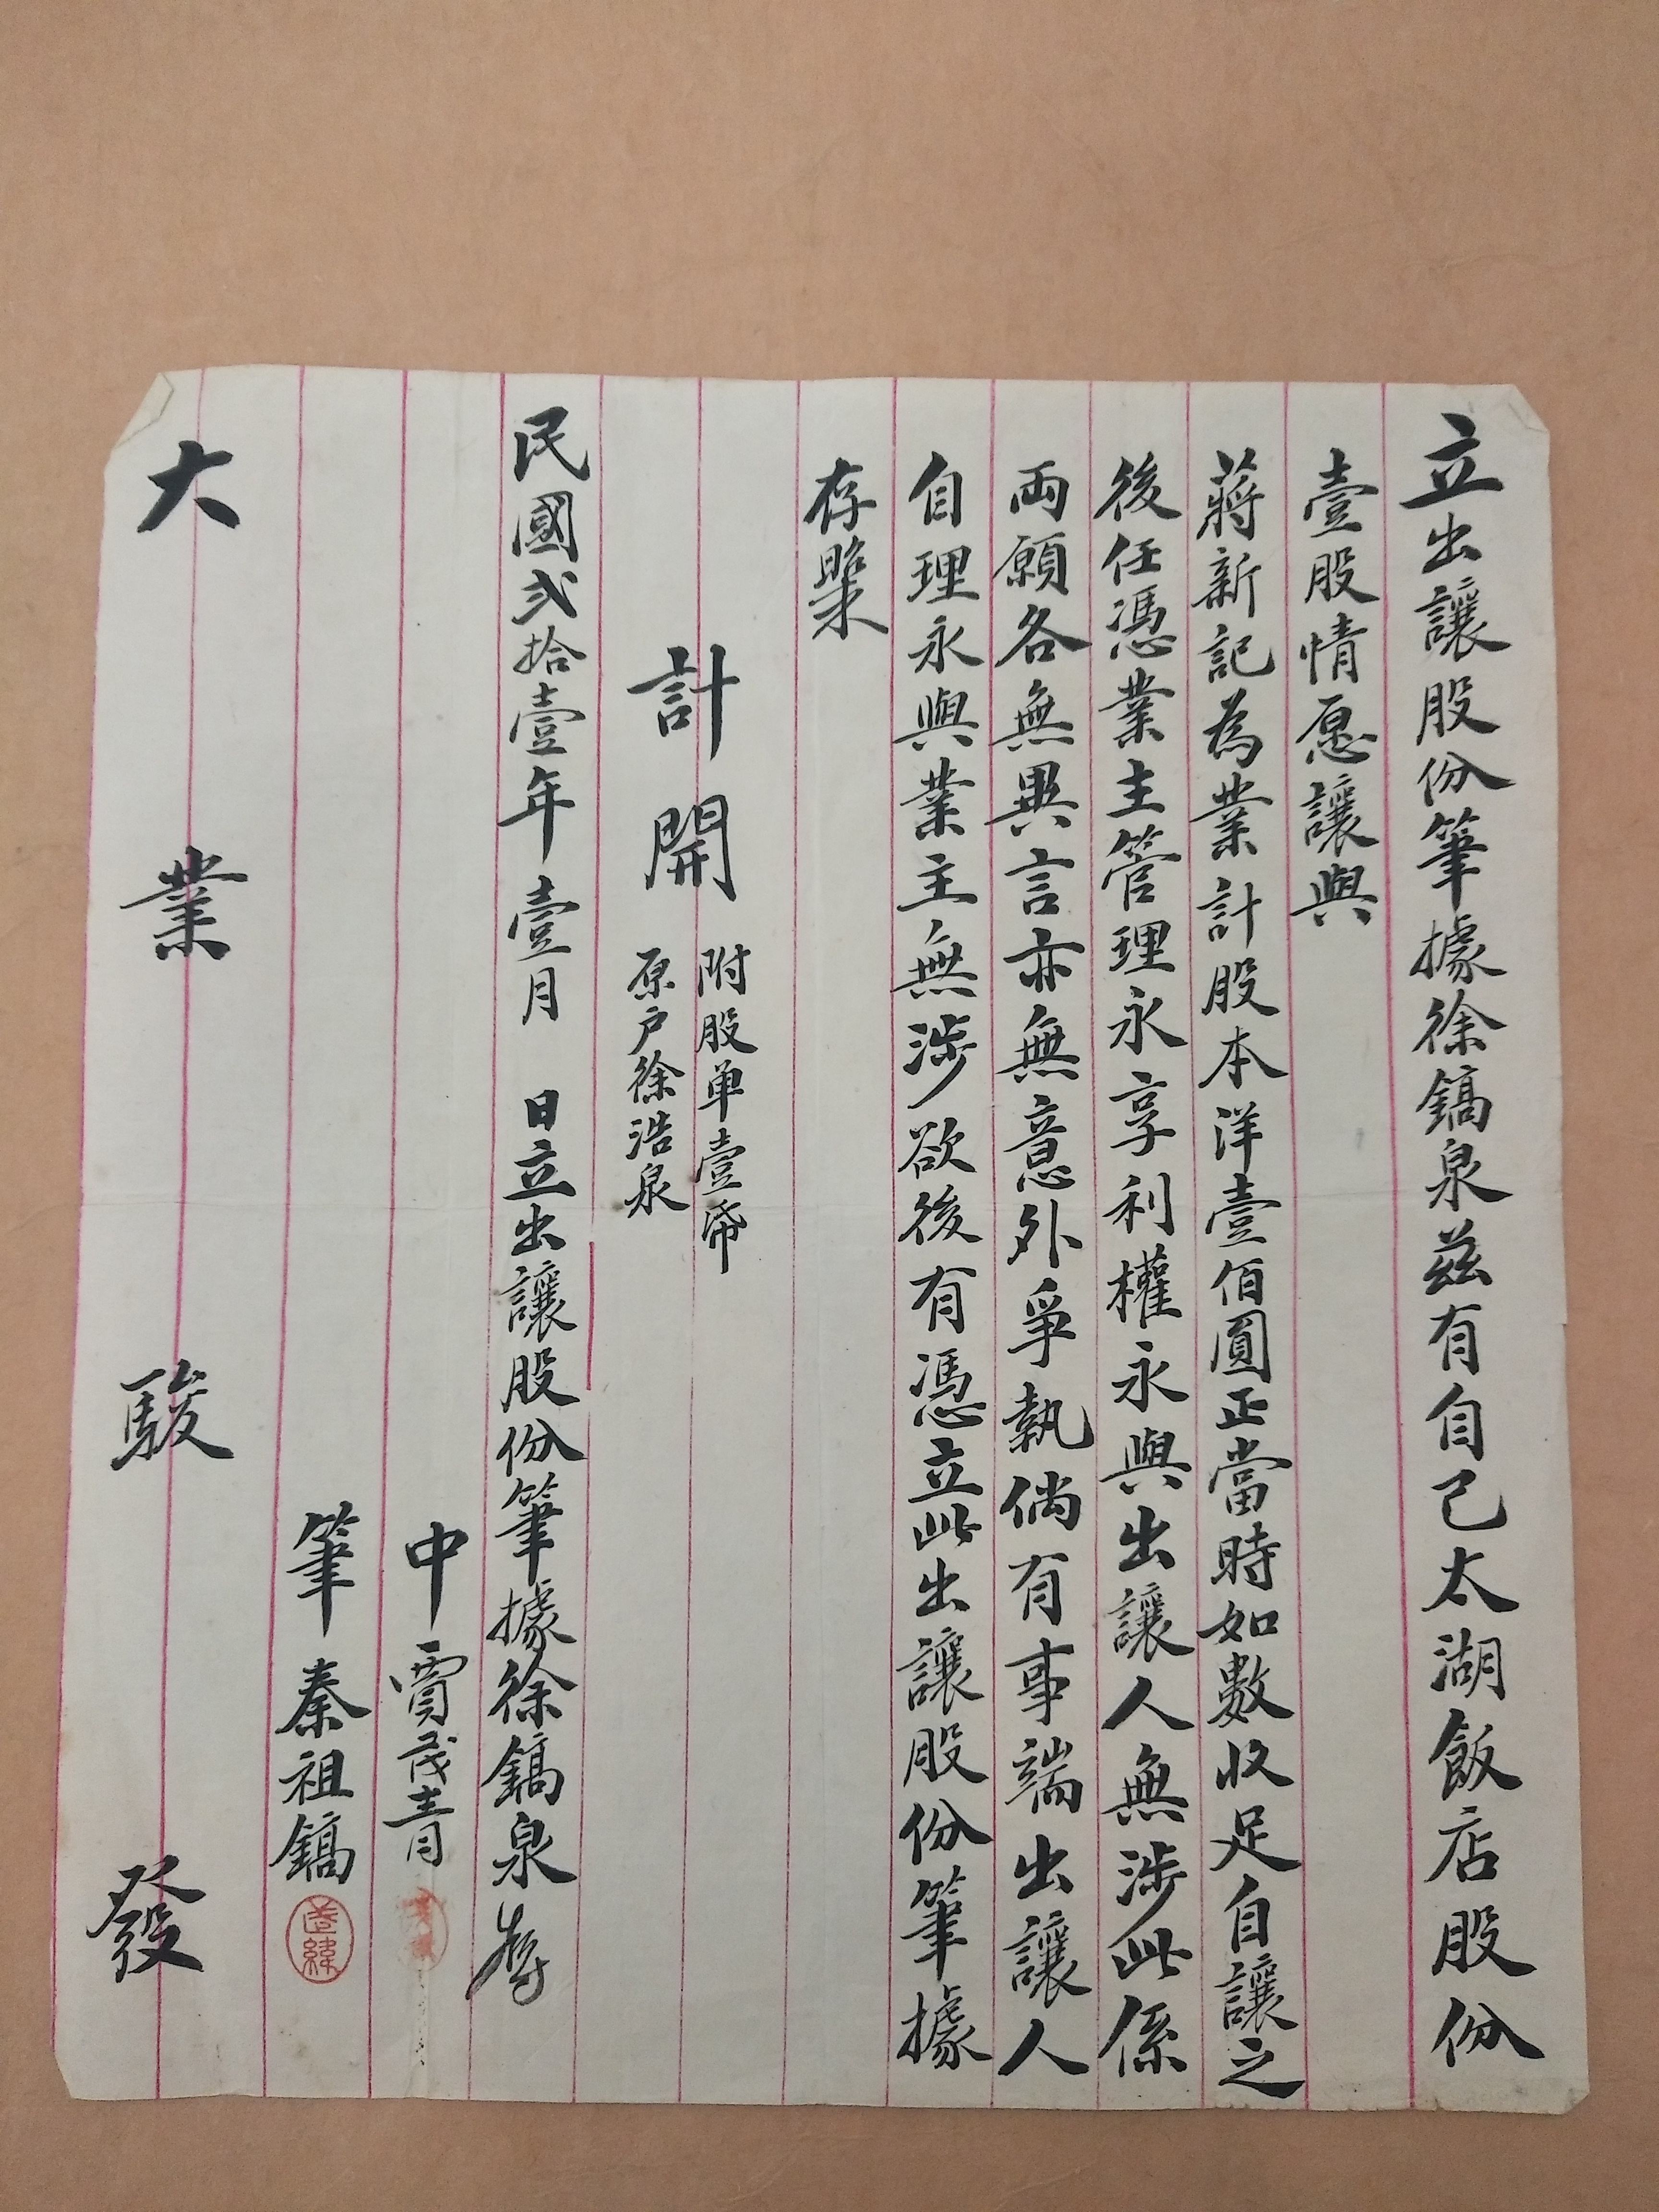 立出讓股份筆據徐鎬泉茲有自己太湖飯店股份
壹股情愿讓與
蔣新記為業計股本洋壹佰圓正當時如數收足自讓之
後任憑業主管理永享利權永與出讓人無涉此係
両願各無異言亦無意外爭執倘有事端出讓人
自理永與業主無涉欲後有憑立此出讓股份筆據
存㷖
計開
附股单壹帋
原户徐浩泉
民國弍拾壹年 壹月 日立出讓股份筆據徐鎬泉
中 賈茂青
筆 秦祖鎬
大業駿發